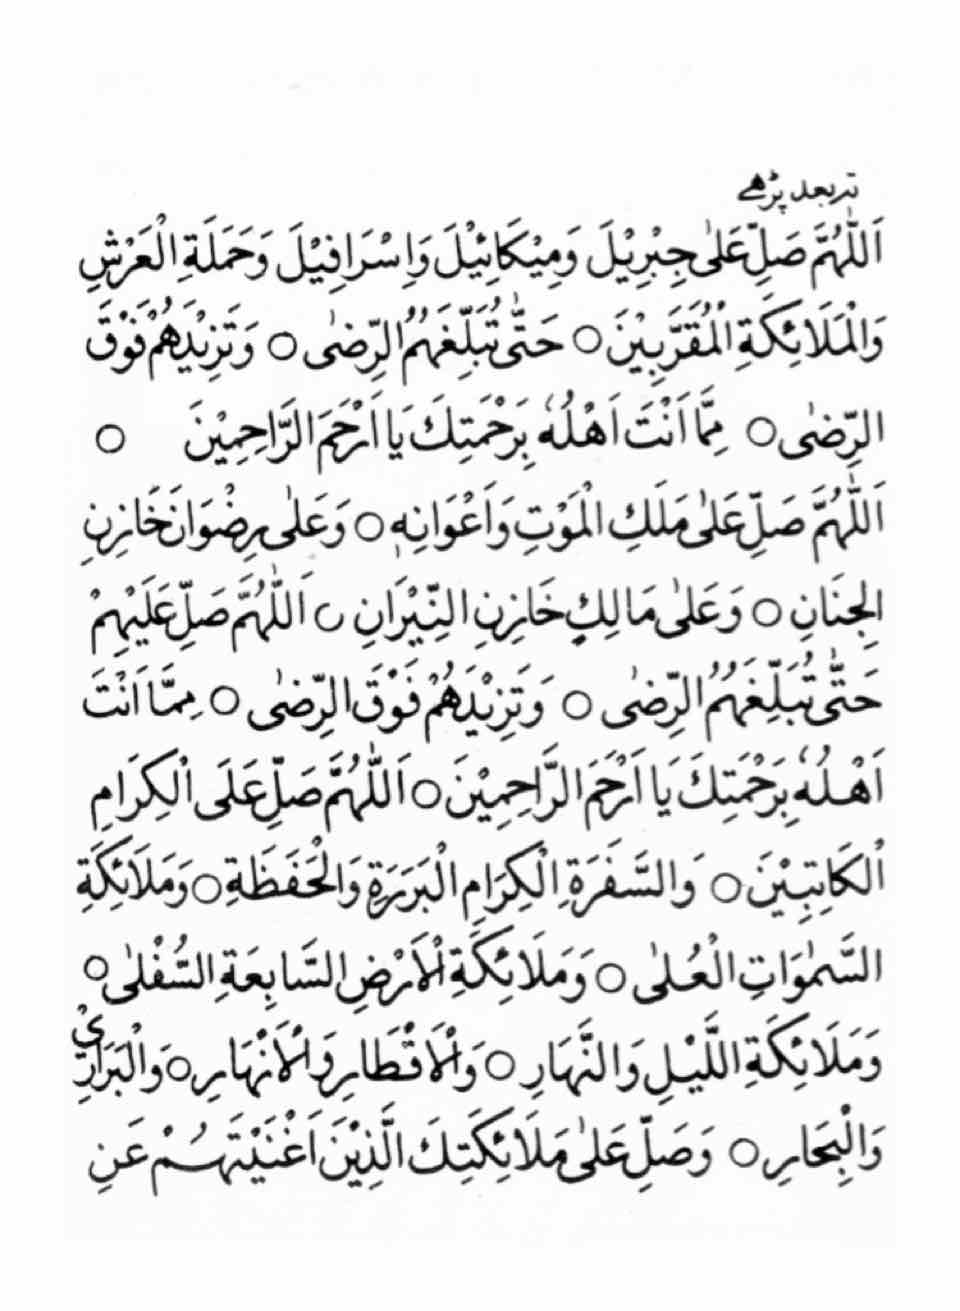 بعد پڑھے
اَللّٰهُمَّ صَلِّ عَلٰى جِبْرِيْلَ وَمِيْكَائِيْلَ وَاِسْرَافِيْلَ وَحَمَلَةِ الْعَرْشِ
وَالْمَلَائِكَةِ الْمُقَرَّبِيْنَ ○ حَتّٰى تُبَلِّغَهُمُ الرِّضٰى ○ وَتَزِيْدَهُمْ فَوْقَ
الرِّضٰى ○ مِمَّا اَنْتَ اَهْلُهٗ بِرَحْمَتِكَ يَا اَرْحَمَ الرَّاحِمِيْنَ ○
اَللّٰهُمَّ صَلِّ عَلٰى مَلَكِ الْمَوْتِ وَاَعْوَانِهٖ ○ وَعَلٰى رِضْوَانَ خَازِنِ
الْجِنَانِ ○ وَعَلٰى مَالِكٍ خَازِنِ النِّيْرَانِ ○ اَللّٰهُمَّ صَلِّ عَلَيْهِمْ
حَتّٰى تُبَلِّغَهُمُ الرِّضٰى ○ وَتَزِيْدَهُمْ فَوْقَ الرِّضٰى ○ مِمَّا اَنْتَ
اَهْلُهٗ بِرَحْمَتِكَ يَا اَرْحَمَ الرَّاحِمِيْنَ ○ اَللّٰهُمَّ صَلِّ عَلَى الْكِرَامِ
الْكَاتِبِيْنَ ○ وَالسَّفَرَةِ الْكِرَامِ الْبَرَرَةِ وَالْحَفَظَةِ ○ وَمَلَائِكَةِ
السَّمٰوَاتِ الْعُلٰى ○ وَمَلَائِكَةِ الْاَرْضِ السَّابِعَةِ السُّفْلٰى ○
وَمَلَائِكَةِ اللَّيْلِ وَالنَّهَارِ ○ وَالْاَقْطَارِ وَالْاَنْهَارِ ○ وَالْبَرَارِيْ
وَالْبِحَارِ ○ وَصَلِّ عَلٰى مَلَائِكَتِكَ الَّذِيْنَ اَغْنَيْتَهُمْ عَنِ